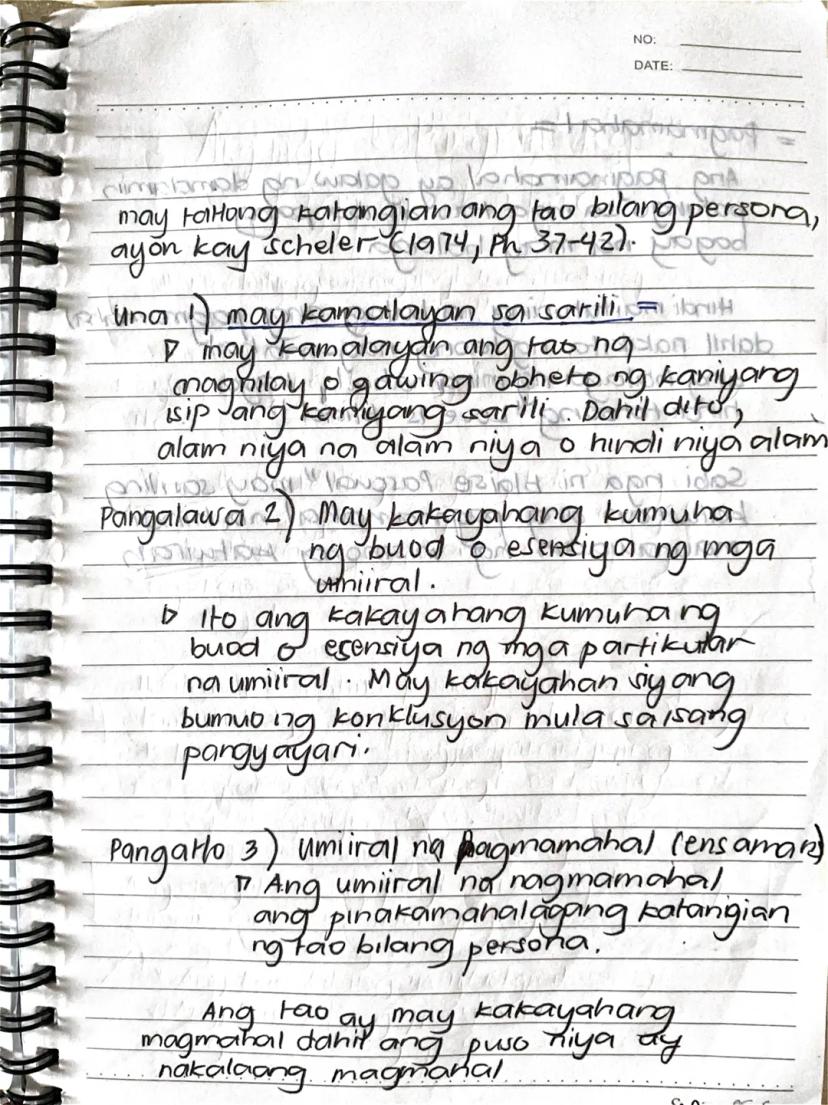 NO:
DATE:
may tatlong katangian ang tao bilang persona,
ayon kay scheler (1974, Ph 37-42).
Una 1) may kamalayan sa sarili =
may kamalayan ang tao ng
magnilay o gawing obheto ng kaniyang
isip ang kaniyang sarili. Dahil dito,
alam niya na alam niya o hindi niya alam
Pangalawa 2) May kakayahang kumuha
ng buod o esensiya ng mga
umiiral.
Ito ang kakayahang kumuha ng
buod o esensiya ng mga partikular
na umiiral. May kakayahan siyang
bumuo ng konklusyon mula sa isang
pangyayari.
Pangatlo 3) umiiral na pagmamahal (ens amans)
Ang umiiral na nagmamahal
ang pinakamahalagang katangian
ng tao bilang persona.
Ang tao ay may kakayahang
magmahal dahil ang puso niya ay
nakalaang magmahal